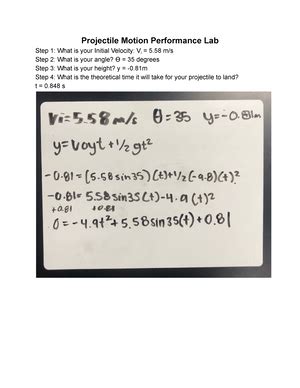 Projectile Motion Performance Lab
Step 1: What is your Initial Velocity: Vi = 5.58 m/s
Step 2: What is your angle? Θ = 35 degrees
Step 3: What is your height? y = -0.81m
Step 4: What is the theoretical time it will take for your projectile to land?
t = 0.848 s
Vi=5.58m/s θ=35 y=-0.81m
y=Voyt+1/2gt²
-0.81=(5.58sin35)(t)+1/2(-9.8)(t)²
-0.81=5.58sin35(t)-4.9(t)²
+0.81 +0.81
0=-4.9t²+5.58sin35(t)+0.81